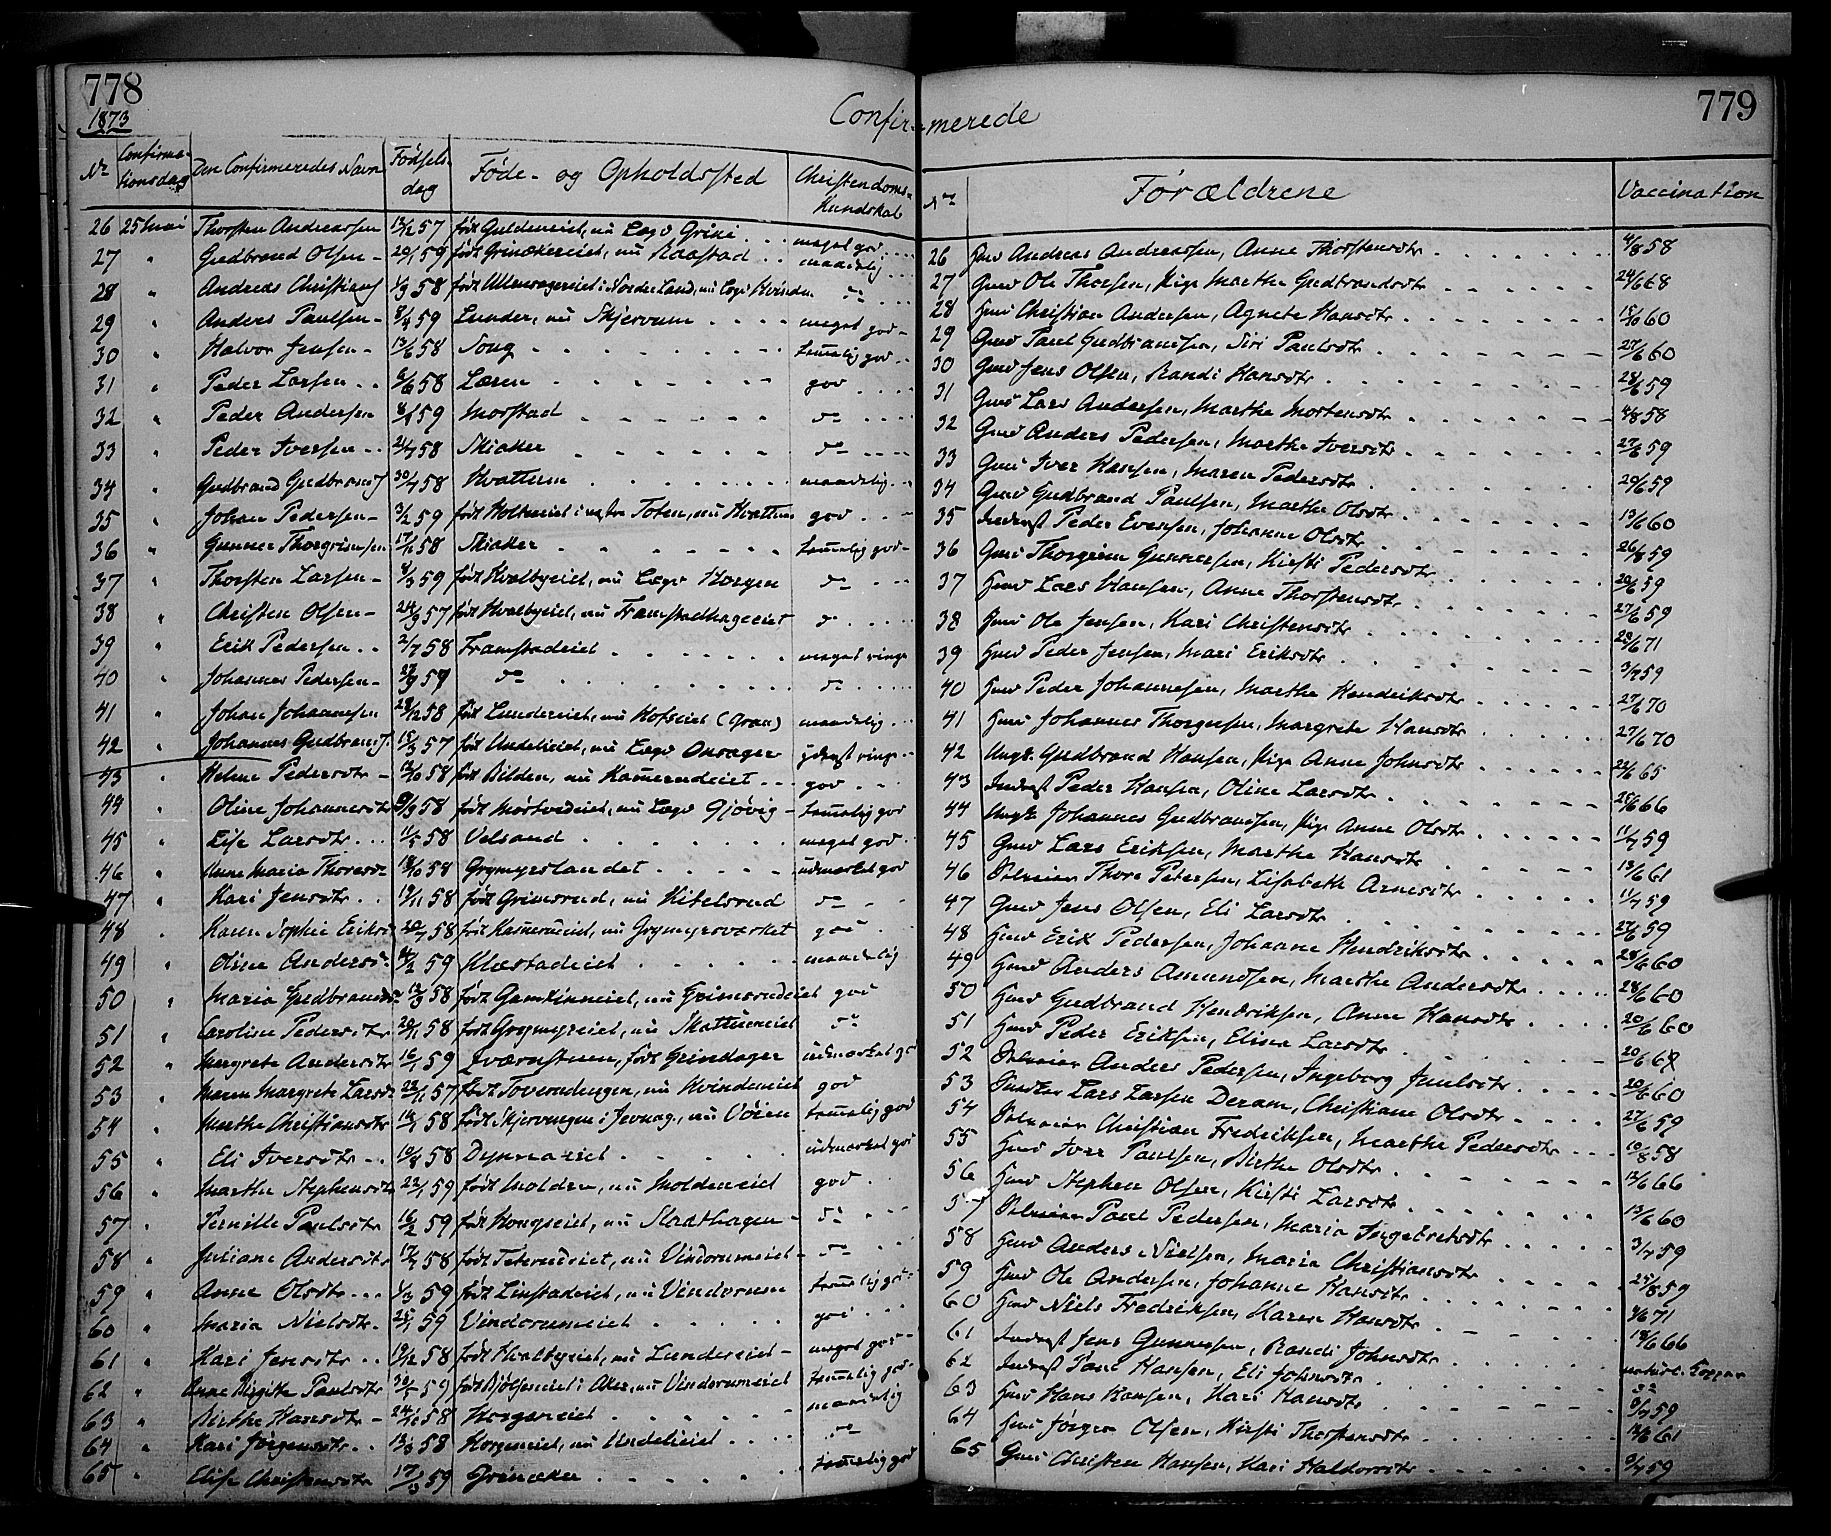 778
1873
Confirmerede
779
Nr Confirmationsdag Den Confirmeredes Navn Fødselsdag Føde- og Opholdssted Christendoms-Kundskab
Nr Forældrene Vaccination
26 25 Mai Thorsten Andreassen 57 født nu Lægd Grini meget god
27 " Gudbrand Olsen 59 født nu Raastad maadelig
28 " Andreas Christians 1/3 58 født i Nordre Land, nu Lægd Hvinden do
29 " Anders Paulsen 8/4 59 Lunder, nu Skjervum meget god
30 " Halvor Jensen 13/6 58 Song temmelig god
31 " Peder Larsen 58 Læren god
32 " Peder Andersen 59 Morstad do
33 " Peder Iversen 58 Skiaker do
34 " Gudbrand Gudbrands 30/7 58 Hvattum maadelig
35 " Johan Pedersen 3/2 59 født i vestre Toten, nu Hvattum god
36 " Gunner Thorgrimsen 58 Skiaker temmelig god
37 " Thorsten Larsen 8/3 59 født Hvalbyeiet, nu Lægd Horgen do
38 " Christen Olsen 24/9 57 født Hvalbyeiet, nu Framstadhageeiet do
39 " Erik Pedersen 2/7 58 Framstadeiet meget ringe
40 " Johannes Pedersen do do
41 " Johan Johannesen 28/12 58 født Lundereiet, nu Hofseiet (Gran) maadelig
42 " Johannes Gudbrands. 15/3 57 født Undelieiet, nu Lægd Onsager yderst ringe
43 " Helene Pedersdtr 58 født Bilden, nu god
44 " Oline Johannesdtr 58 født nu Lægd Gjøvig temmelig god
45 " Elise Larsdtr 11/5 58 Velsand meget god
46 " Anne Maria Thoresdr 18/10 58 Grymyrslandet udmærket god
47 " Kari Jensdtr 19/11 58 født Grimsrud, nu Kitelsrud do
48 " Karen Sophie Eriksd 58 født nu Grymyrsværket god
49 " Oline Andersd 59 Klæstadeiet maadelig
50 " Maria Gudbrandsd 58 født nu Grimsrudeiet god
51 " Caroline Pedersdtr 58 født Grymyreiet, nu Skattumeiet do
52 " Margrete Andersdtr 16/1 59 Qværnstuen, født Grindager udmærket
53 " Maren Margrete Larsdr 22/11 57 født nu Hvindeneiet god
54 " Marthe Christiansdtr 58 født i Jevnag, nu Vøien temmelig god
55 " Eli Iversdtr 10/8 58 Dynnaeiet udmærket god
56 " Marthe Stephensdtr 22/1 59 født Molden, nu Moldeneiet god
57 " Pernille Paulsdtr 16/2 59 født Kongseiet, nu Stadthagen do
58 " Juliane Andersdtr 58 født nu Vindorumeiet do
59 " Anne Olsdtr 1/3 59 født Linstadeiet, nu Vindorum temmelig god
60 " Maria Nielsdtr. 25/1 59 Vindorumeiet god
61 " Kari Jensdtr 19/12 58 født Hvalbyeiet, nu Lundereiet meget god
62 " Anne Birgitte Paulsdtr 59 født i Aker, nu Vindorumeiet temmelig god
63 " Birthe Hansdtr 58 Horgeneiet maadelig
64 " Kari Jørgensdtr 13/3 58 Horgeneiet, nu Undelieiet do
65 " Elise Christensdtr 17/3 59 Grinaker temmelig god
26 Andreas Andreassen, Anne Thorstensdtr 4/8 58
27 Gmd Ole Thorsen, Pige Marthe Gudbrandsdtr 24/6 68
28 Hmd Christian Andersen, Agnete Hansdtr 60
29 Gmd Paul Gudbrandsen, Siri Paulsdtr 27/6 60
30 Gmd Jens Olsen, Randi Hansdtr 28/6 59
31 Gmd Lars Andersen, Marthe Mortensdtr 4/8 58
32 Gmd Anders Pedersen, Marthe Iversdtr 27/6 59
33 Gmd Iver Hansen, Maren Pedersdtr 29/6 59
34 Gmd Gudbrand Paulsen, Marthe Olsdtr 13/6 60
35 Inderst Peder Evensen, Johanne Olsdtr 26/8 59
36 Gmd Thorgrim Gunnersen, Kirsti Pedersdtr 20/6 59
37 Hmd Lars Hansen, Anne Thorstensdtr 27/6 59
38 Hmd Ole Jensen, Kari Christensdtr 71
39 Hmd Peder Jensen, Mari Eriksdtr 3/7 59
40 Hmd Peder Johannesen, Marthe Hendriksdtr 27/6 70
41 Hmd Johannes Margrete Hansdtr 27/6 70
42 Ungk. Gudbrand Hansen, Pige Anne Johnsdtr 22/6 65
43 Inderst Peder Hansen, Oline Larsdtr 25/6 66
44 Ungk. Johannes Gudbrandsen, Pige Anne Olsdtr 11/7 59
45 Gmd Lars Eriksen, Marthe Hansdtr 61
46 Thore Petersen, Lisabeth Arnesdtr 11/7 59
47 Gmd Jens Olsen, Eli Larsdtr 27/6 59
48 Hmd Erik Pedersen, Johanne Hendriksdtr 28/6 60
49 Hmd Anders Amundsen, Marthe Andersdtr 28/6 60
50 Hmd Gudbrand Hendriksen, Anne Hansdtr 20/6 60
51 Hmd Peder Eriksen, Elina Larsdtr
52 Anders Pedersen, Ingeborg Paulsdtr 60
53 Lars Larsen Deram, Christiane Olsdtr 27/6 59
54 Christian Fredriksen, Marthe Pedersdtr 10/8 58
55 Hmd Iver Paulsen, Birthe Olsdtr 66
56 Hmd Stephen Olsen, Kirsti Larsdtr 13/6 60
57 Paul Pedersen, Maria Ingebretsdtr 3/7 59
58 Hmd Anders Nielsen, Maria Christiansdtr 25/8 59
59 Hmd Ole Andersen, Johanne Hansdtr 71
60 Hmd Niels Fredriksen, Karen Hansdtr 18/6 66
61 Inderst Jens Gunnersen, Randi Johnsdtr naturl. Kopper
62 Inderst Paul Hansen, Eli Johnsdtr do
63 Hmd Hans Hansen, Kari Hansdtr 9/7 59
64 Hmd Jørgen Olsen, Kirsti Thorstensdtr 61
65 Gmd Christen Hansen, Kari Haldorsdtr 9/7 59